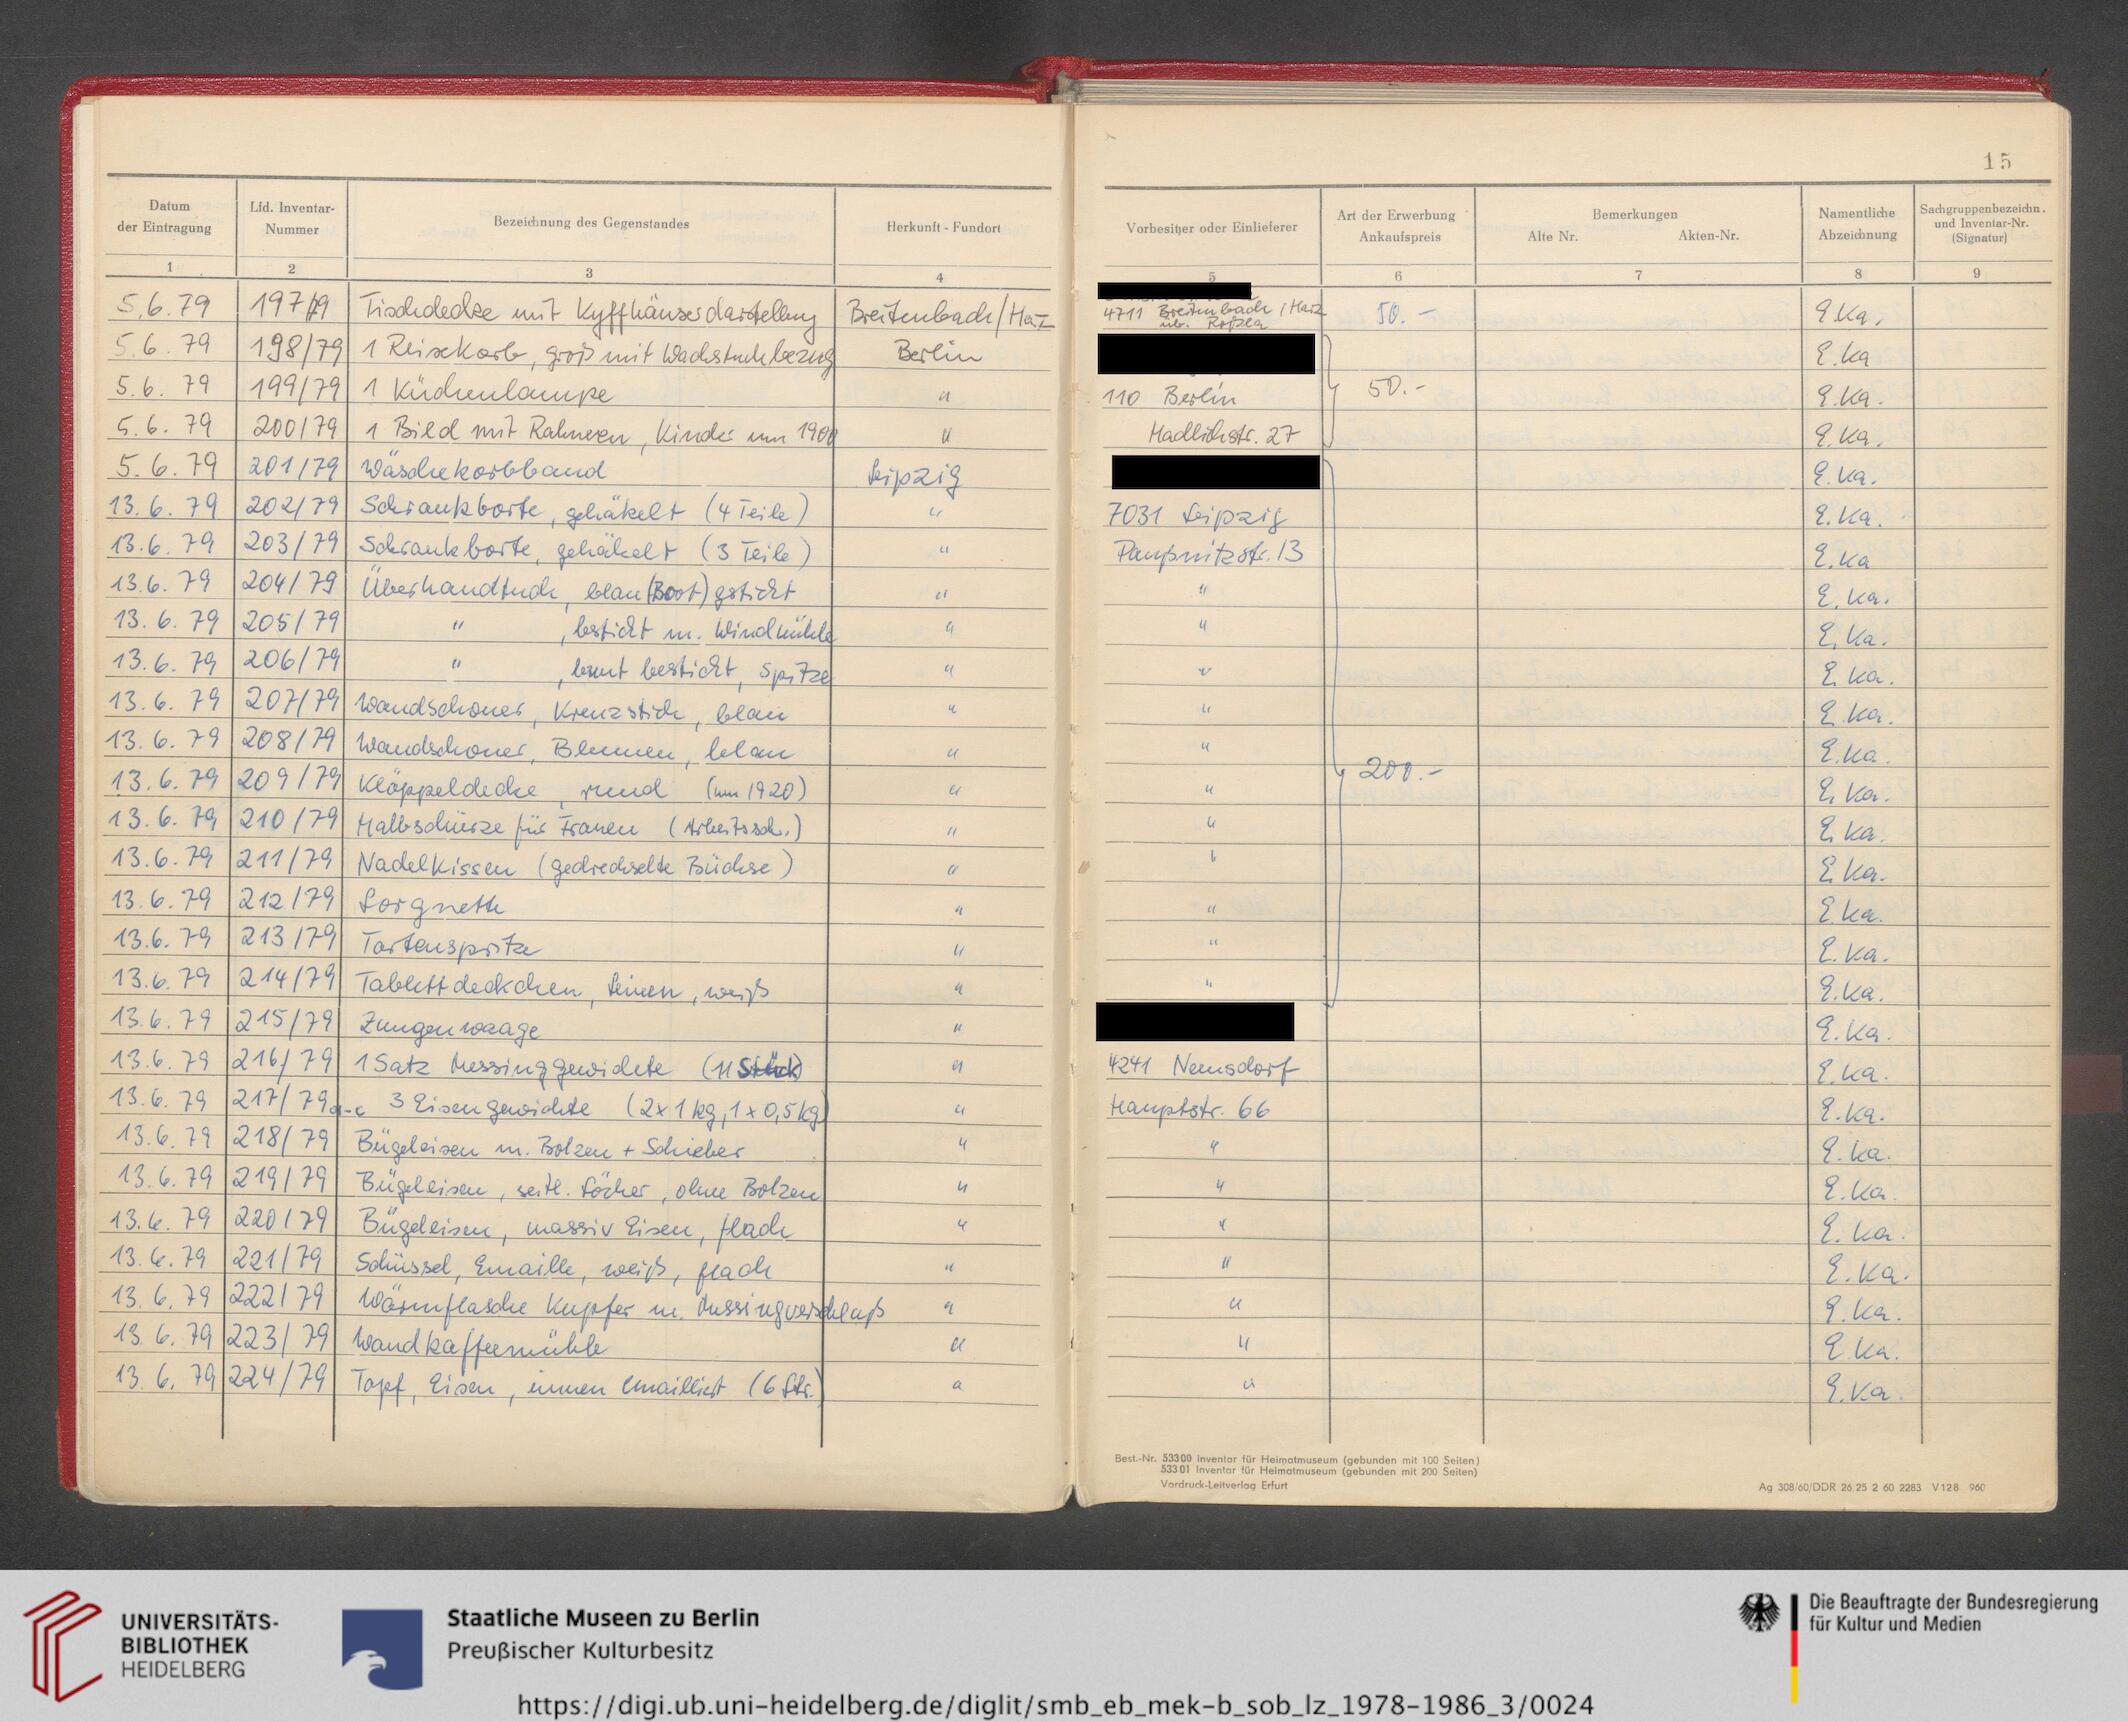 15
Datum der Eintragung | Lfd. Inventar-Nummer | Bezeichnung des Gegenstandes | Herkunft - Fundort | Vorbesitzer oder Einlieferer | Art der Erwerbung Ankaufspreis | Bemerkungen Alte Nr. Akten-Nr. | Namentliche Abzeichnung | Sachgruppenbezeichn. und Inventar-Nr. (Signatur)
1 | 2 | 3 | 4 | 5 | 6 | 7 | 8 | 9
5.6.79 | 197/79 | Tischdecke mit Kyffhäuserdarstellung | Breitenbach/Harz | 4711 Breitenbach/Harz üb. Roßla | 50.- | E.Ka.
5.6.79 | 198/79 | 1 Reisekorb, groß mit Wachstuchbezug | Berlin | E.Ka
5.6.79 | 199/79 | 1 Küchenlampe | " | 110 Berlin | 50.- | E.Ka.
5.6.79 | 200/79 | 1 Bild mit Rahmen, Kinder um 1900 | " | Hadlichstr. 27 | E.Ka.
5.6.79 | 201/79 | Wäschekorbband | Leipzig | E.Ka.
13.6.79 | 202/79 | Schrankborte, gehäkelt (4 Teile) | " | 7031 Leipzig | E.Ka.
13.6.79 | 203/79 | Schrankborte, gehäkelt (3 Teile) | " | 13 | E.Ka
13.6.79 | 204/79 | Überhandtuch, blau (Boot) gstickt | " | " | E.Ka.
13.6.79 | 205/79 | " , bestickt m. Windmühle | " | " | E.Ka.
13.6.79 | 206/79 | " , bunt bestickt, Spitze | " | " | E.Ka.
13.6.79 | 207/79 | Wandschoner, Kreuzstich, blau | " | " | E.Ka.
13.6.79 | 208/79 | Wandschoner, Blumen, blau | " | " | E.Ka.
13.6.79 | 209/79 | Klöppeldecke, rund (um 1920) | " | " | 200.- | E.Ka.
13.6.79 | 210/79 | Halbschürze für Frauen (Arbeitssch.) | " | " | E.Ka.
13.6.79 | 211/79 | Nadelkissen (gedrechselte Büchse) | " | " | E.Ka.
13.6.79 | 212/79 | Lorgnette | " | " | E.Ka.
13.6.79 | 213/79 | Tortenspritze | " | " | E.Ka.
13.6.79 | 214/79 | Tablettdeckchen, Leinen, weiß | " | " | E.Ka.
13.6.79 | 215/79 | Zungenwaage | " | E.Ka.
13.6.79 | 216/79 | 1 Satz Messinggewichte (11 Stück) | " | 4241 Nemsdorf | E.Ka.
13.6.79 | 217/79 a-c | 3 Eisengewichte (2x1kg, 1x0,5kg) | " | Hauptstr. 66 | E.Ka.
13.6.79 | 218/79 | Bügeleisen m. Bolzen + Schieber | " | " | E.Ka.
13.6.79 | 219/79 | Bügeleisen, seitl. Löcher, ohne Bolzen | " | " | E.Ka.
13.6.79 | 220/79 | Bügeleisen, massiv Eisen, flach | " | " | E.Ka.
13.6.79 | 221/79 | Schüssel, Emaille, weiß, flach | " | " | E.Ka.
13.6.79 | 222/79 | Wärmflasche Kupfer m. Messingverschluß | " | " | E.Ka.
13.6.79 | 223/79 | Wandkaffeemühle | " | " | E.Ka.
13.6.79 | 224/79 | Topf, Eisen, innen emailliert (6 Ltr.) | " | " | E.Ka.
Best.-Nr. 53300 Inventar für Heimatmuseum (gebunden mit 100 Seiten)
53301 Inventar für Heimatmuseum (gebunden mit 200 Seiten)
Vordruck-Leitverlag Erfurt
Ag 308/60/DDR 26.25 2 60 2283 V128 960
UNIVERSITÄTS-
BIBLIOTHEK
HEIDELBERG
Staatliche Museen zu Berlin
Preußischer Kulturbesitz
Die Beauftragte der Bundesregierung
für Kultur und Medien
https://digi.ub.uni-heidelberg.de/diglit/smb_eb_mek-b_sob_lz_1978-1986_3/0024